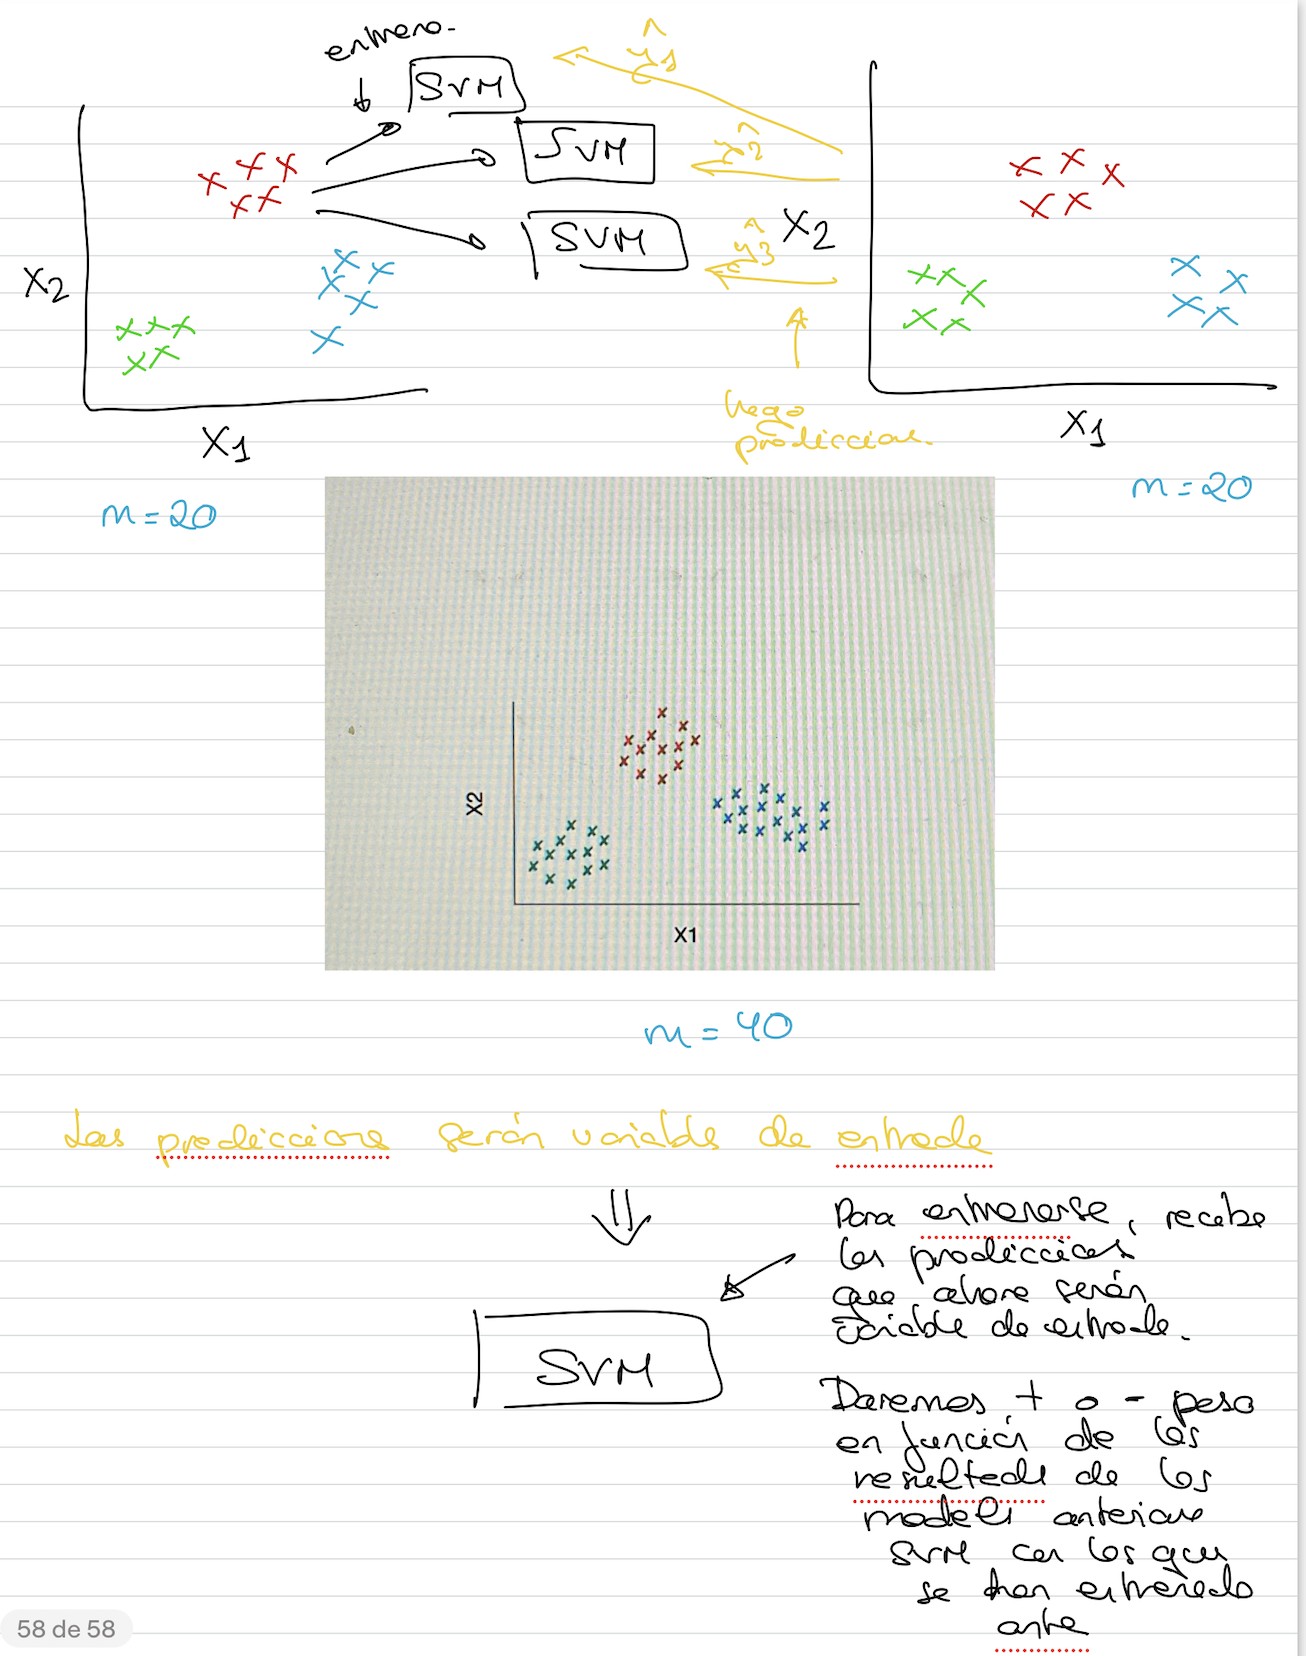 entreno.
SVM
SVM
SVM
ŷ1
ŷ2
ŷ3
X2
X1
X2
X1
Hago
prediccion.
m = 20
m = 20
X2
X1
m = 40
Las predicciones serán variables de entrada
Para entrenarse, recibe
las predicciones
que ahora serán
variable de entrada.
SVM
Daremos + o - peso
en función de los
resultados de los
modelos anteriores
SVM con los que
se han entrenado
antes
58 de 58